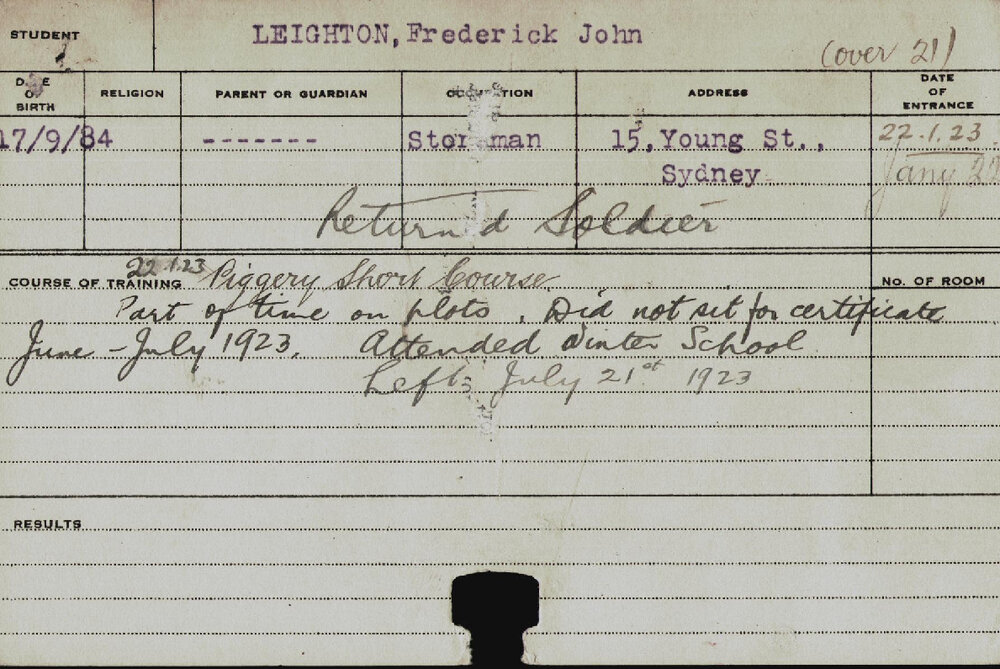 STUDENT LEIGHTON, Frederick John (over 21)
DATE OF BIRTH RELIGION PARENT OR GUARDIAN OCCUPATION ADDRESS DATE OF ENTRANCE
17/9/84 ------- Storeman 15, Young St., 22.1.23.
Sydney Jany 22
Return'd Soldier
COURSE OF TRAINING 22.1.23 Piggery Short Course. NO. OF ROOM
Part of time on plots. Did not sit for certificate
June - July 1923. Attended Winter School
Left July 21st 1923
RESULTS